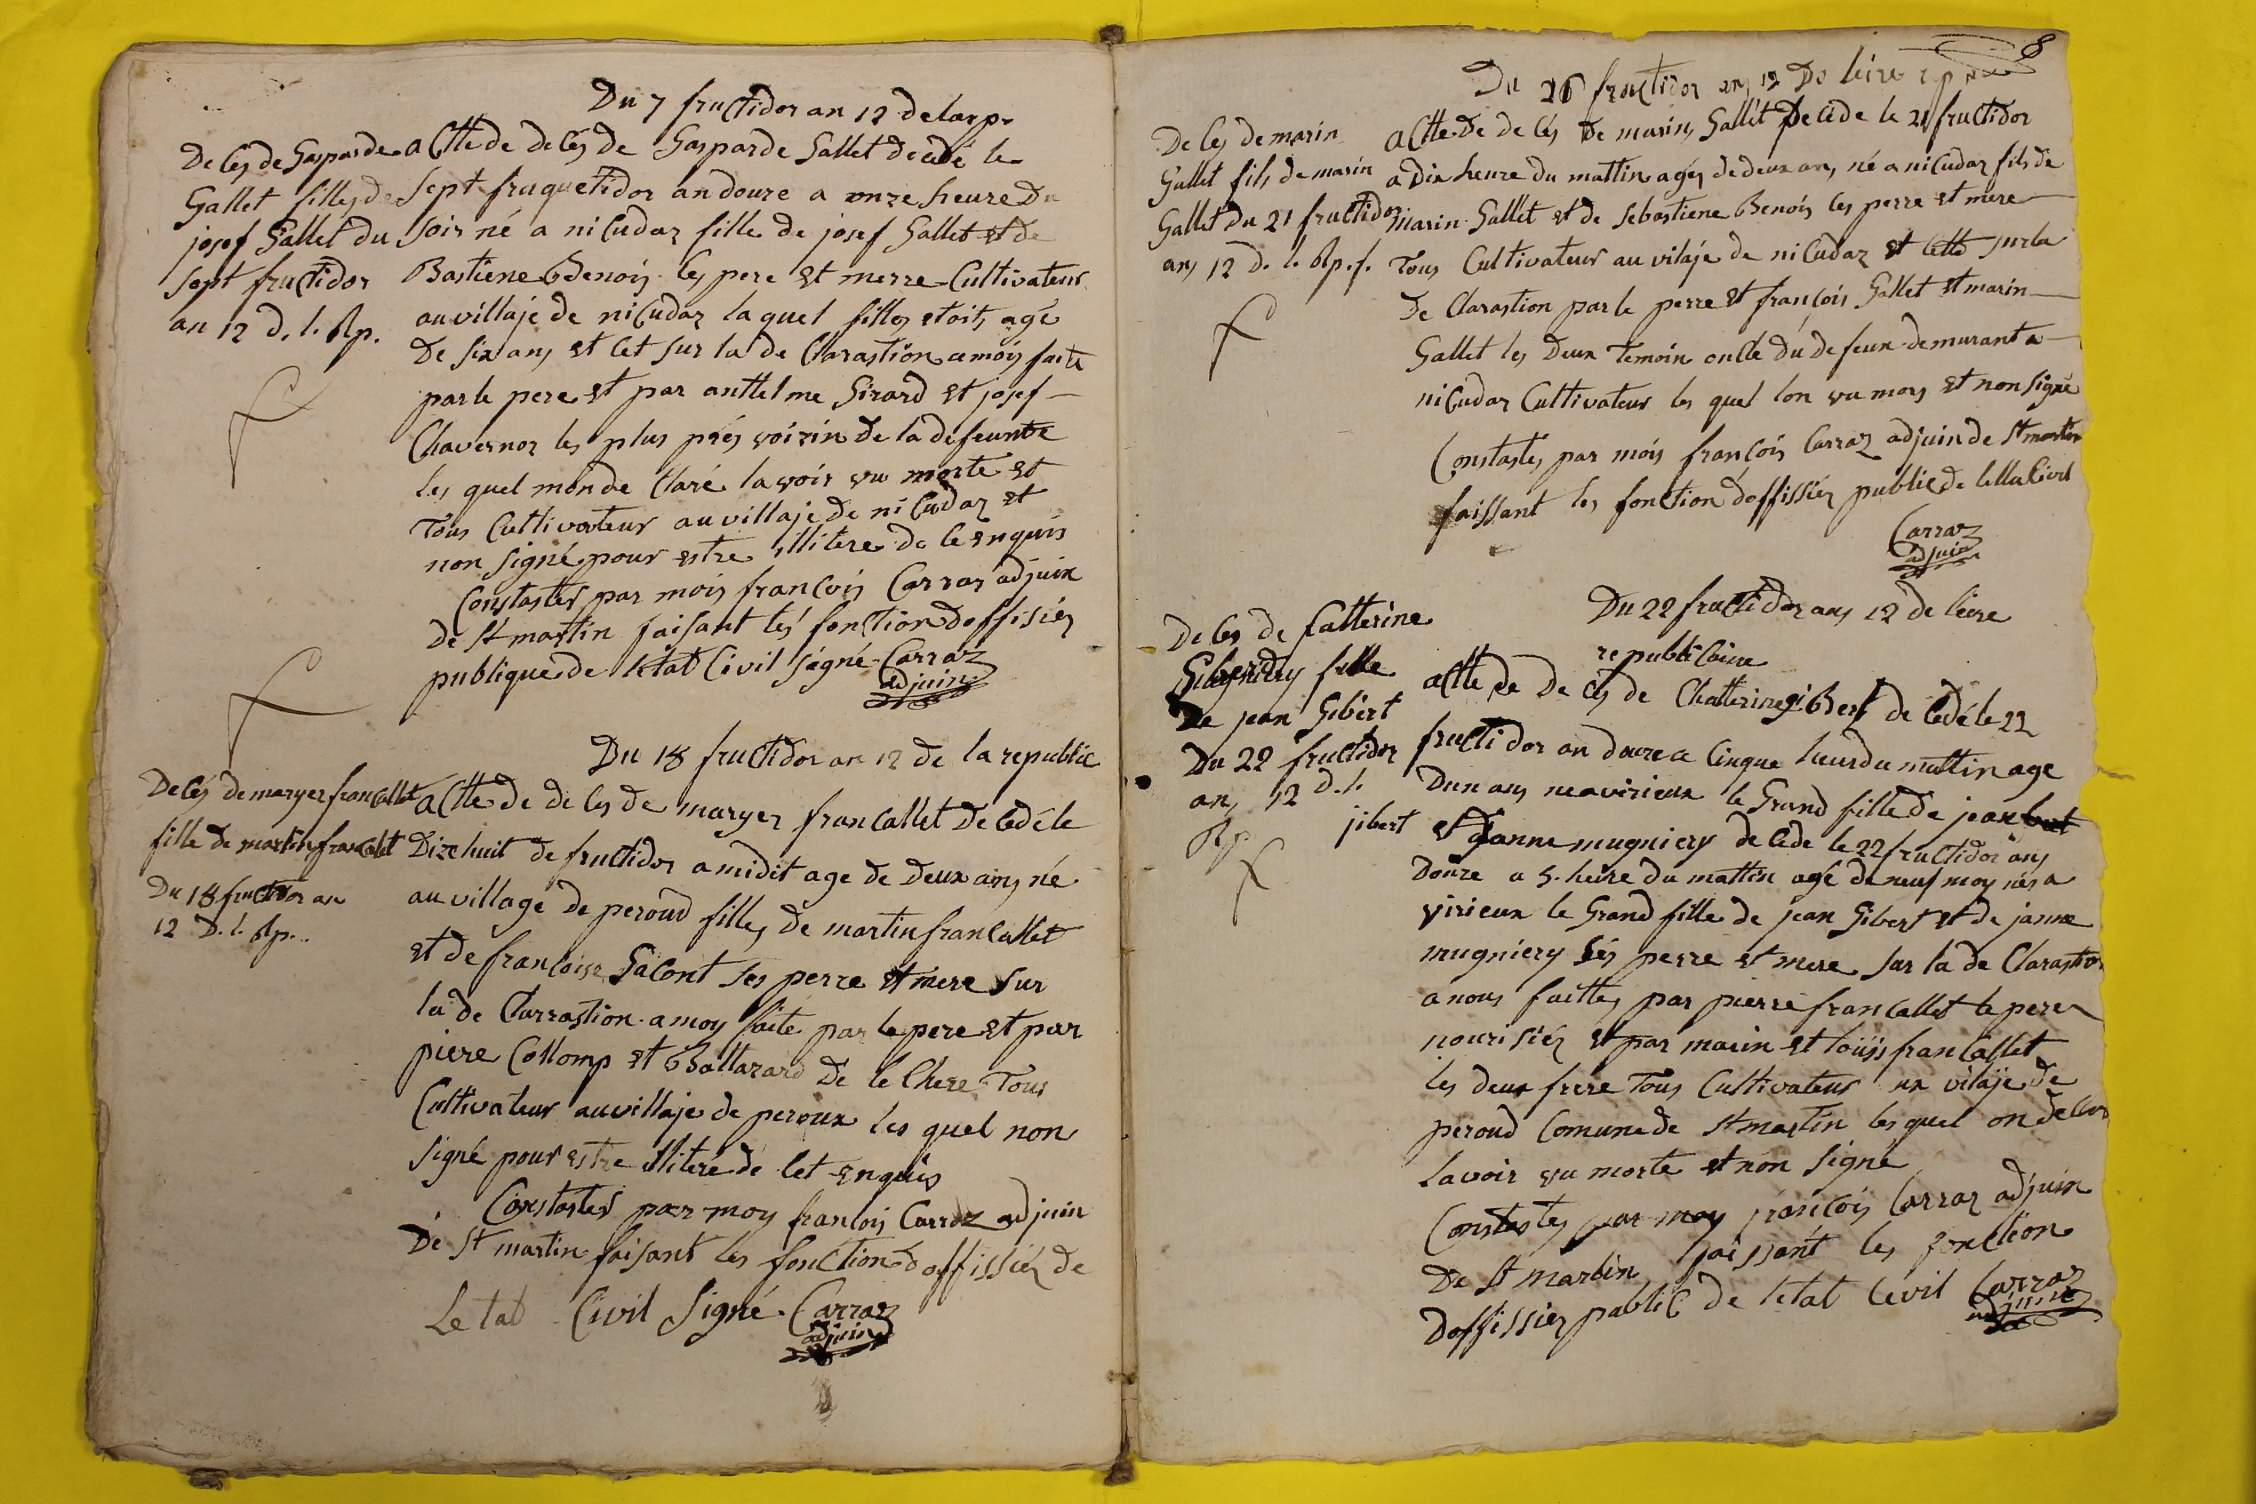 Du 7 fructidor an 12 de la rp.
De Ces de Gasparde
Gallet filles de
josef Gallet du
sept fructidor
an 12 d. l. Rp.
actte de de Cés de Gasparde Gallet decedé le
sept fruquetidor an douze a onze heure Du
soir né a niCudaz fille de josef Gallet et de
Bastiene Benois les pere et merre Cultivateur
au villaje de niCudaz la quel filles etoit agé
De six ans et Cet sur la de Clarastion a mois faite
par le pere et par anttelme Girard et josef
Chavernoz les plus prés voizin de la defeunte
les quel mon de Claré lavoir vu morte et
Tous Cultivateur au villaje de niCudaz et
non signé pour estre illitere de Ce enquis
Constaster par mois francois Carraz adjuin
de St martin faisant les fonction doffisiez
publique de letat Civil signé Carraz
adjuin
Du 18 fructidor an 12 de la republic
De Cés de maryez franCallet
fille de martin franCalet
Du 18 fructidor an
12 D. l. Rp.
actte de de Ces de maryez franCallet DeCedé le
Dize huit de fructidor a midit age de Deux ans né
au village de peroud filles De martin franCallet
et de francoise Gacont ses perre et mere sur
la de Clarrastion a moy faite par le pere et par
piere Collomp et Baltazard De le Chere Tous
Cultivateur au villaje de peroux les quel non
signé pour estre illiteré de Cet enquis
Constaster par moy francois Carraz adjuin
De St martin faisant les fonction doffissiéz de
Le tat Civil Signé Carraz
adjuin
8
Du 26 fructidor an 12 De leire
De Ces de marin
Gallet fils de marin
Gallet du 21 fructidor
ans 12 d. l. Rp. f.
actte De de Cés De marin Gallet DeCede le 21 fructidor
a Dix heure du mattin agés de deux ans né a niCudaz fils de
marin Gallet et de sebastiene Benois les perre et mere
Tous Cultivateur au vilaje de niCudaz et Cette sur la
de Clarastion par le perre et francois Gallet et marin
Gallet les Deux Temoin oncle du defeux demurant a
niCudaz Cultivateur les quel lon vu mors et non signé
Constastes par mois francois Carraz adjuin de St martin
faissant les fonction doffissiéz public de Civil
Carraz
adjuin
Du 22 fructidor ans 12 de leire
republiCaine
De Ces de Catterine
fille
De jean Gibert
Du 22 fructidor
ans 12 d. l.
Rp
actte de De Cés de Chatterine giBert de Cedé le 22
fructidor an douze a Cinque heur du mattin age
Dun ans ne a virieux le Grand fille de jean
jibert et janne mugniery de Cede le 22 fructidor ans
Douze a 5. heire Du mattin agé de neuf moy nés a
virieux le Grand fille de jean Gibert et de janne
mugniery sés perre et mere sur la de Clarastion
a nous faittes par pierre franCallet le pere
nourisiéz et par marin et loüis franCallet
les deux frére Tous Cultivateur ux vilaje de
peroud Comune de St martin les quel on
Lavoir vu morte et non signé
Constastes par moy francois Carraz adjuin
De St martin faissant les fonction
Doffissiez publiC De letat Cevil Carraz
adjuin